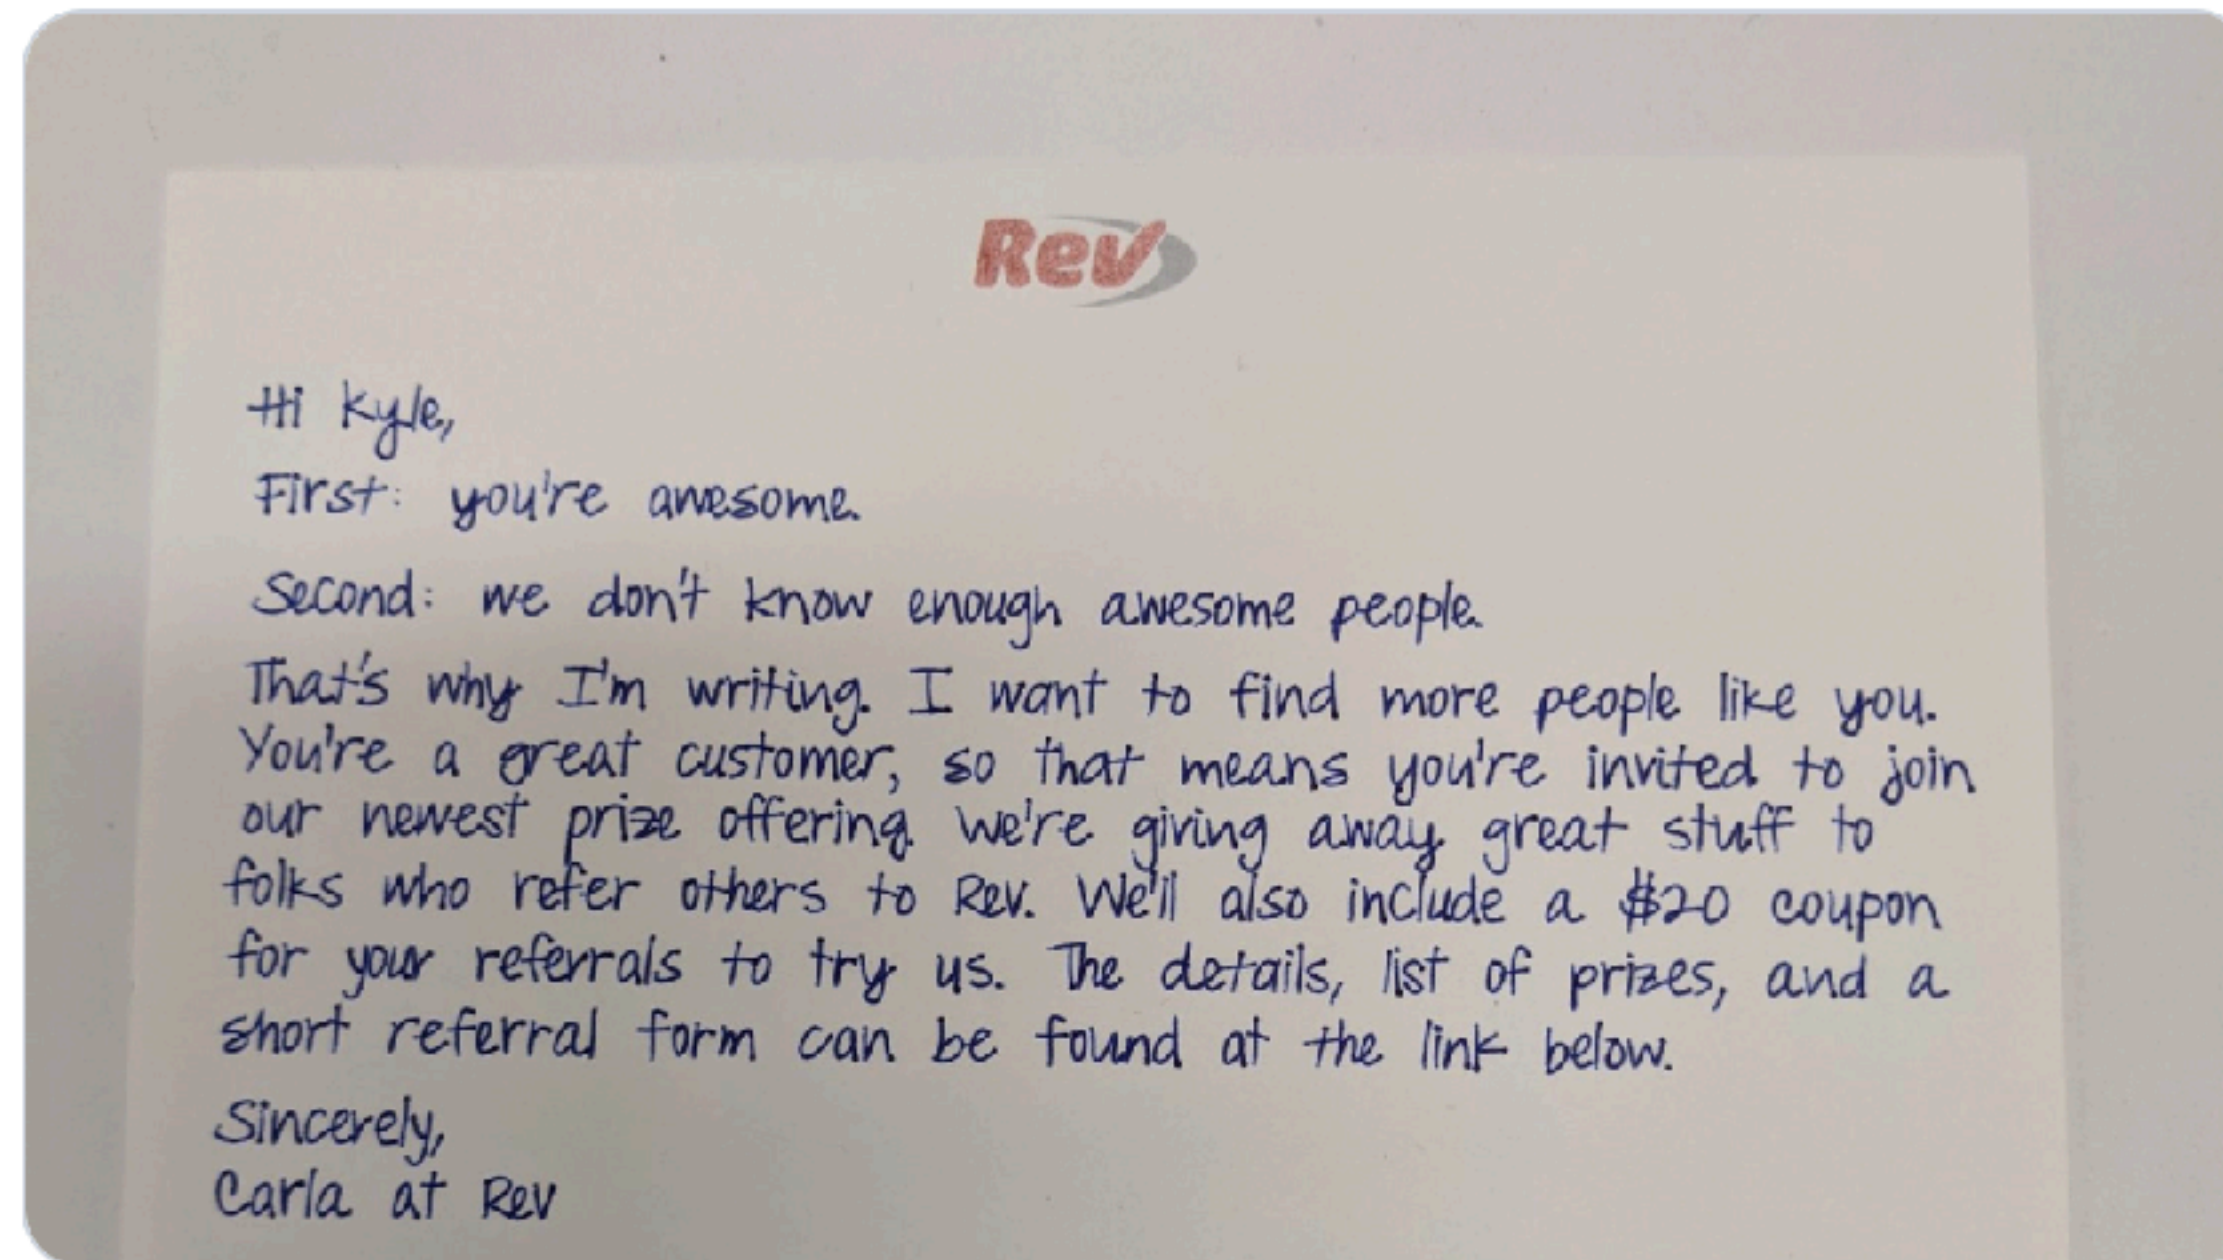 Rev
Hi Kyle,
First: you're awesome.
Second: we don't know enough awesome people.
That's why I'm writing. I want to find more people like you.
You're a great customer, so that means you're invited to join
our newest prize offering. We're giving away great stuff to
folks who refer others to Rev. We'll also include a $20 coupon
for your referrals to try us. The details, list of prizes, and a
short referral form can be found at the link below.
Sincerely,
Carla at Rev